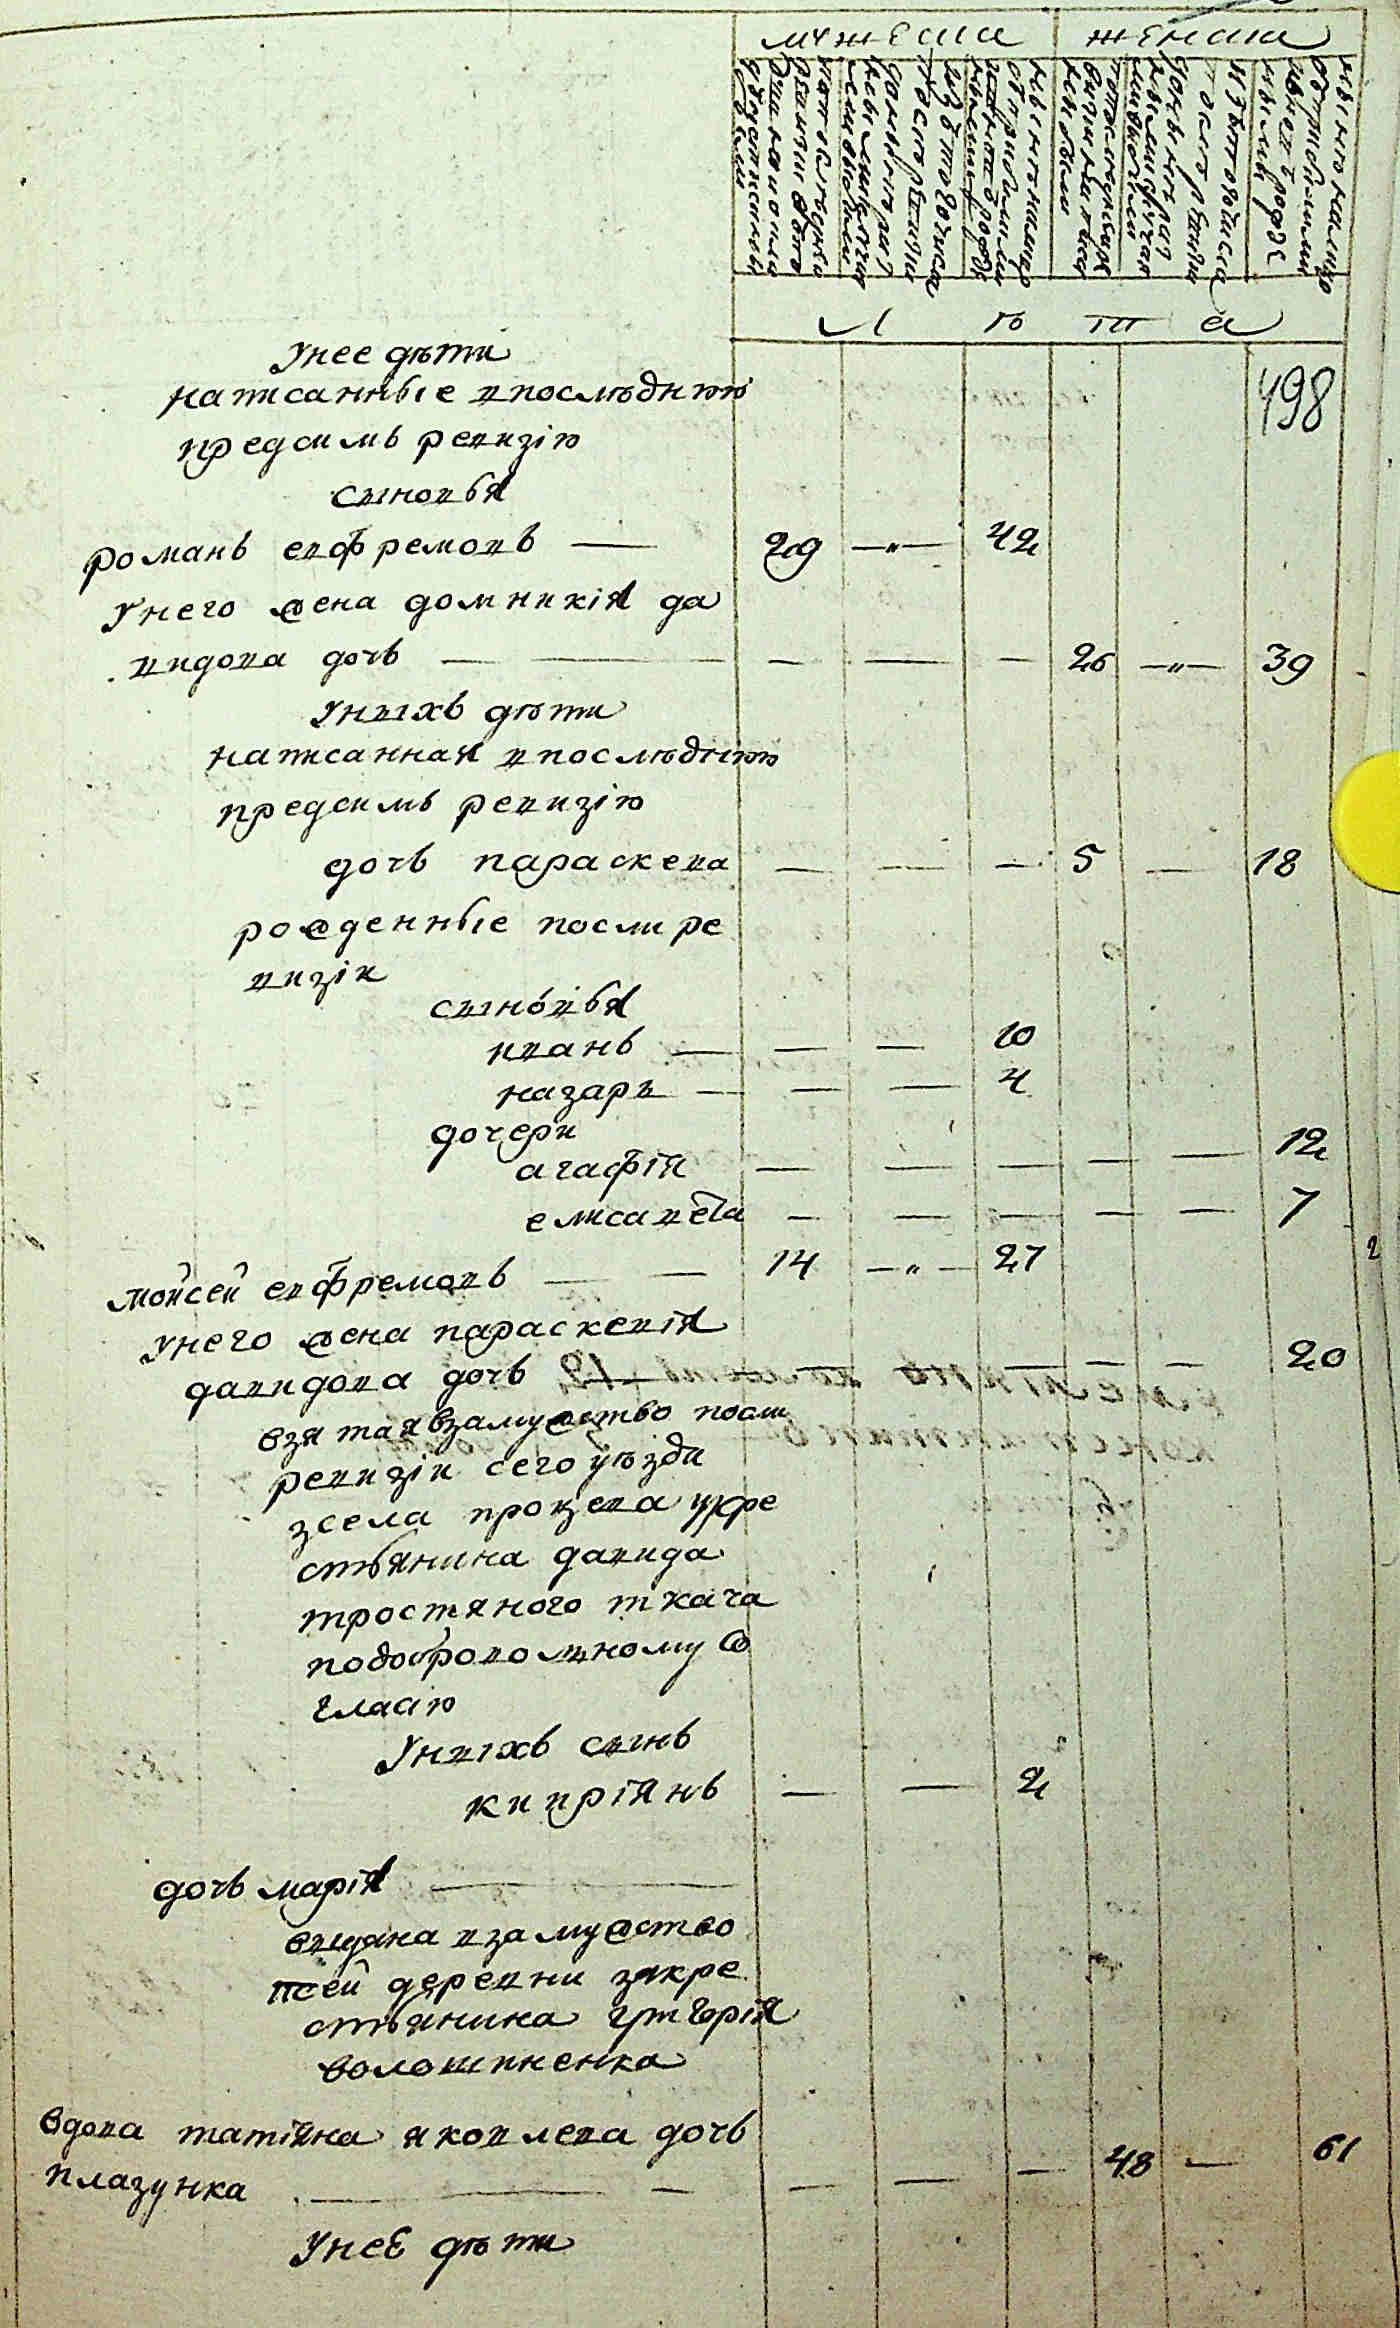 мужеска женска
Л ѣ т а
498
Унее дѣти
написанные впослѣднюю
предсимъ ревизію
сыновья
романъ евфремовъ — 29 —"— 42
Унего жена домникія да
видова дочь — — — — 26 —"— 39
Унихъ дѣти
написанная впослѣднюю
предсимъ ревизію
дочь параскева — — — 5 — 18
рожденные посли ре
визіи
сыновья
иванъ — — — 10
назаръ — — — 4
дочери
агафія — — — — — 12
елисавета — — — — — 7
мойсей евфремовъ — — 14 —"— 27
унего жена параскевія
давидова дочь — — — — — 20
взятаявзамужство посли
ревизіи сего уѣзда
зсела процева укре
стьянина давида
тростяного ткача
подобровольному со
гласію
Унихъ сынъ
кипріянъ — — 2
дочь марія —
выдана взамужство
всей деревни закре
стьянина григорія
волошиненка
вдова татіяна яковлева дочь
плазунка — — — — — — 48 — 61
Унеё дѣти